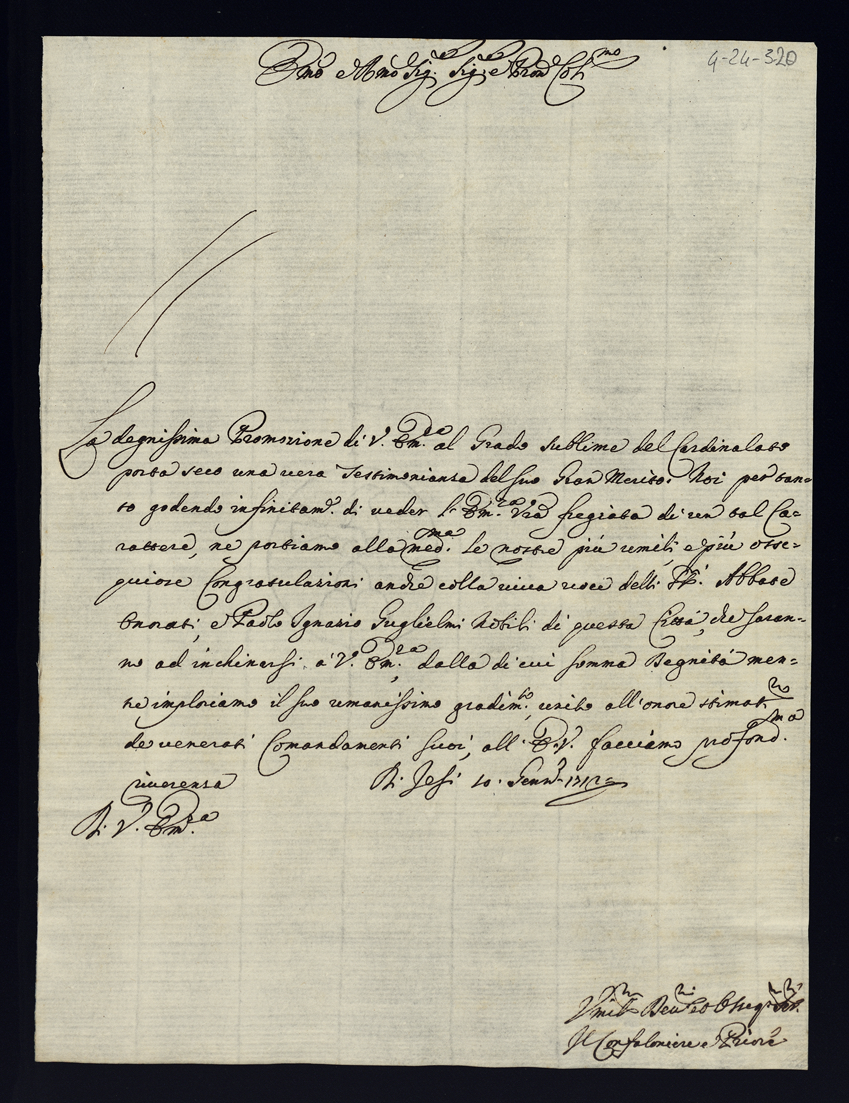 4-24-320
Em.o e R.mo Sig.r Sig.r e Pron Col.mo
La degnissima Promozione di V. Em.za al Grado sublime del Cardinalato
porta seco una vera Testimonianza del suo Gran Merito. Noi per tan=
to godendo infinitam.e di veder l'Em.za V.ra fregiata di un tal Ca=
rattere, ne portiamo alla med.ma le nostre più umili, e più osse=
quiose Congratulazioni anche colla viva voce delli SS.ri Abbate
Onorati, e Paolo Ignazio Guglielmi Nobili di questa Città, che saran=
no ad inchinarsi à V. Em.za, dalla di cui somma Benignità men=
tre imploriamo il suo umanissimo gradim.to, unito all'onore stimat.mo
de venerati Comandamenti suoi, all'E.V. facciamo profond.ma
riverenza Di Jesi 10. Genn.o 1712=
Di V. Em.za
Umil.mi Dev.mi ed Obseq.mi
Il Confaloniere e Priori